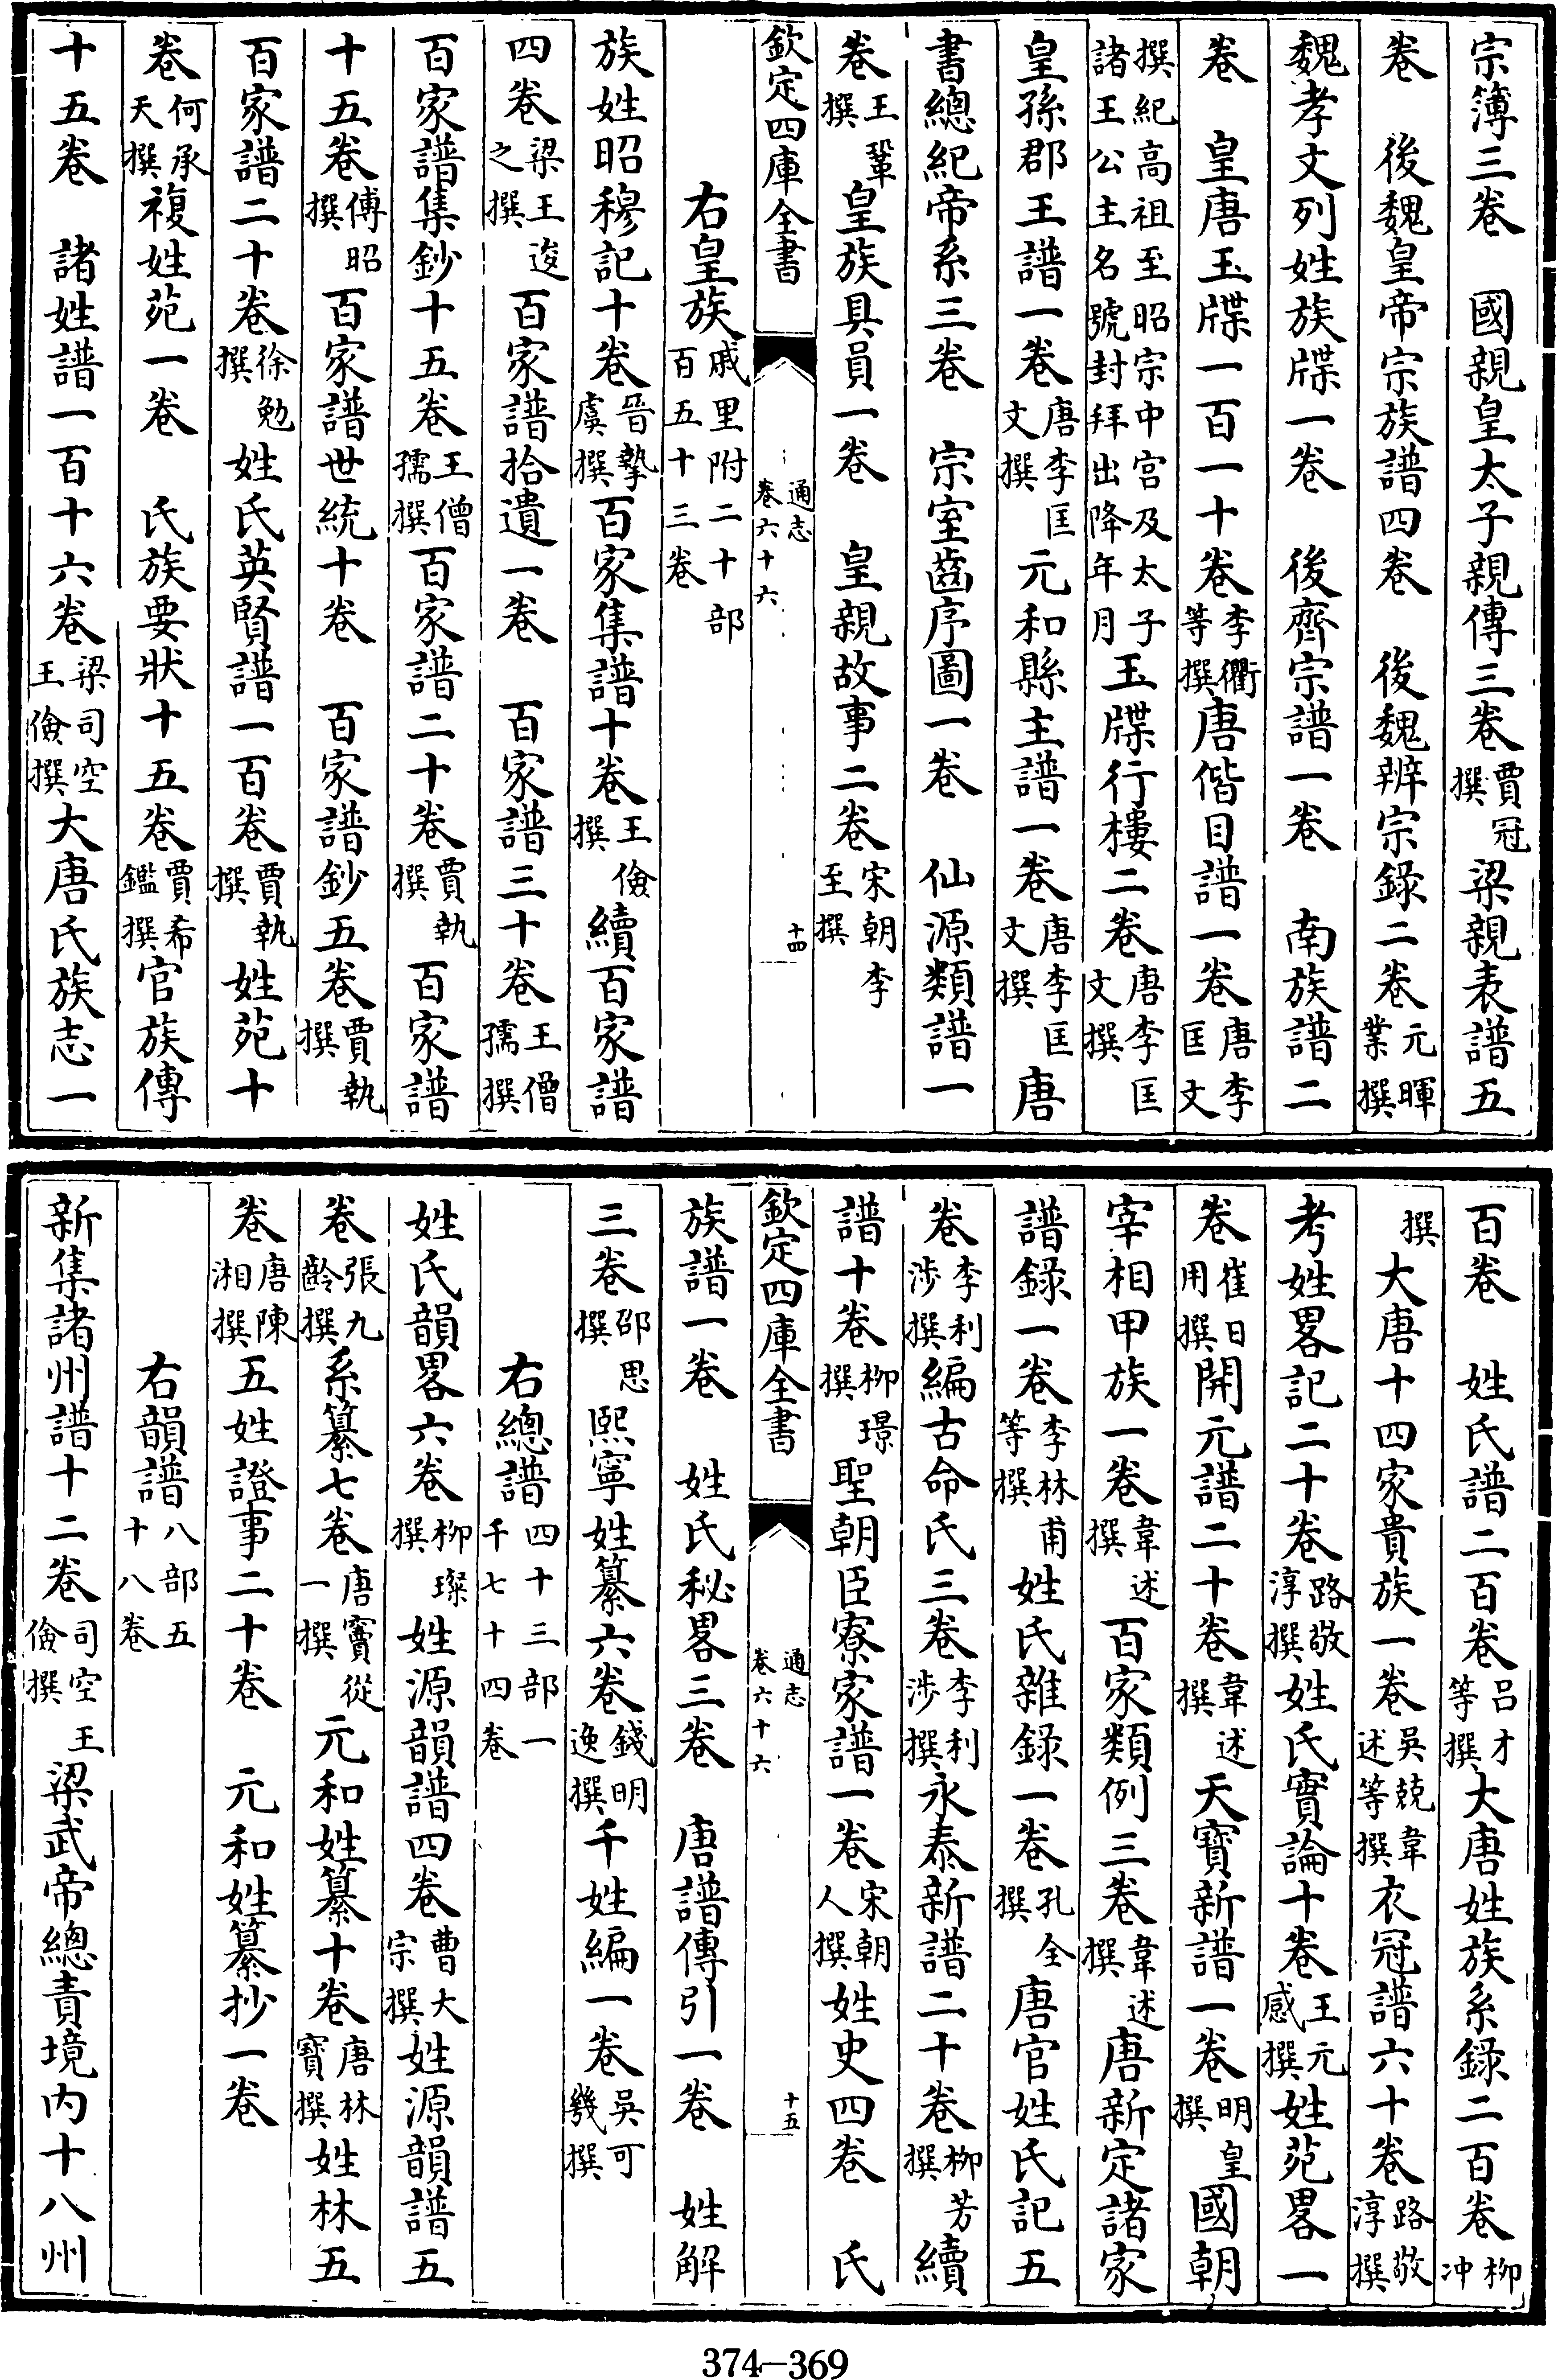 宗簿三卷　國親皇太子親傳三卷賈冠撰梁親表譜五
卷　後魏皇帝宗族譜四卷　後魏辨宗錄二卷元暉業撰
魏孝文列姓族牒一卷　後齊宗譜一卷　南族譜二
卷　皇唐玉牒一百一十卷李衢等撰唐偕日譜一卷唐李匡文
撰紀高祖至昭宗中宮及太子諸王公主名號封拜出降年月玉牒行樓二卷唐李匡文撰
皇孫郡王譜一卷唐李匡文撰元和縣主譜一卷唐李匡文撰唐
書總紀帝系三卷　宗室齒序圖一卷　仙源類譜一
卷王鞏撰皇族具員一卷　皇親故事二卷宋朝李至撰
欽定四庫全書　通志卷六十六　十四
右皇族戚里附二十部百五十三卷
族姓昭穆記十卷晉摯虞撰百家集譜十卷王儉撰續百家譜
四卷梁王逡之撰百家譜拾遺一卷　百家譜三十卷王僧孺撰
百家譜集鈔十五卷王僧孺撰百家譜二十卷賈執撰百家譜
十五卷傅昭撰百家譜世統十卷　百家譜鈔五卷賈執撰
百家譜二十卷徐勉撰姓氏英賢譜一百卷賈執撰姓苑十
卷何承天撰複姓苑一卷　氏族要狀十五卷賈希鑑撰官族傳
十五卷　諸姓譜一百十六卷梁司空王儉撰大唐氏族志一
百卷　姓氏譜二百卷呂才等撰大唐姓族系錄二百卷柳冲
撰大唐十四家貴族一卷吳兢韋述等撰衣冠譜六十卷路敬淳撰
考姓畧記二十卷路敬淳撰姓氏實論十卷王元感撰姓苑畧一
卷崔日用撰開元譜二十卷韋述撰天寶新譜一卷明皇撰國朝
宰相甲族一卷韋述撰百家類例三卷韋述撰唐新定諸家
譜錄一卷李林甫等撰姓氏雜錄一卷孔全撰唐官姓氏記五
卷李利涉撰編古命氏三卷李利涉撰永泰新譜二十卷柳芳撰續
譜十卷柳璟撰聖朝臣寮家譜一卷宋朝人撰姓史四卷　氏
欽定四庫全書　通志卷六十六　十五
族譜一卷　姓氏秘畧三卷　唐譜傳引一卷　姓解
三卷邵思撰熙寧姓纂六卷錢明逸撰千姓編一卷吳可幾撰
右總譜四十三部一千七十四卷
姓氏韻畧六卷柳璨撰姓源韻譜四卷曹大宗撰姓源韻譜五
卷張九齡撰系纂七卷唐竇從一撰元和姓纂十卷唐林寶撰姓林五
卷唐陳湘撰五姓證事二十卷　元和姓纂抄一卷
右韻譜八部五十八卷
新集諸州譜十二卷司空王儉撰梁武帝總責境內十八州
374-369